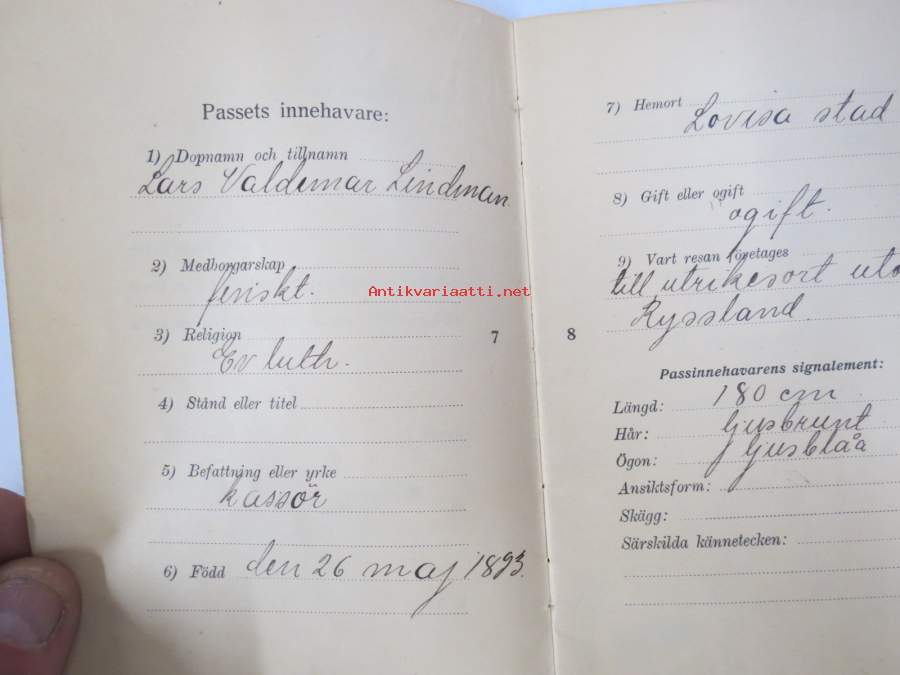 Passets innehavare:
1) Dopnamn och tillnamn
Lars Valdemar Lindman.
2) Medborgarskap
finskt.
3) Religion
Ev luth.
4) Stånd eller titel
5) Befattning eller yrke
kassör
6) Född den 26 maj 1893.
7
Antikvariaatti.net
8
7) Hemort
Lovisa stad
8) Gift eller ogift
ogift.
9) Vart resan företages
till utrikesort uto
Ryssland
Passinnehavarens signalement:
Längd: 180 cm
Hår: ljusbrunt
Ögon: ljusblåa
Ansiktsform:
Skägg:
Särskilda kännetecken: